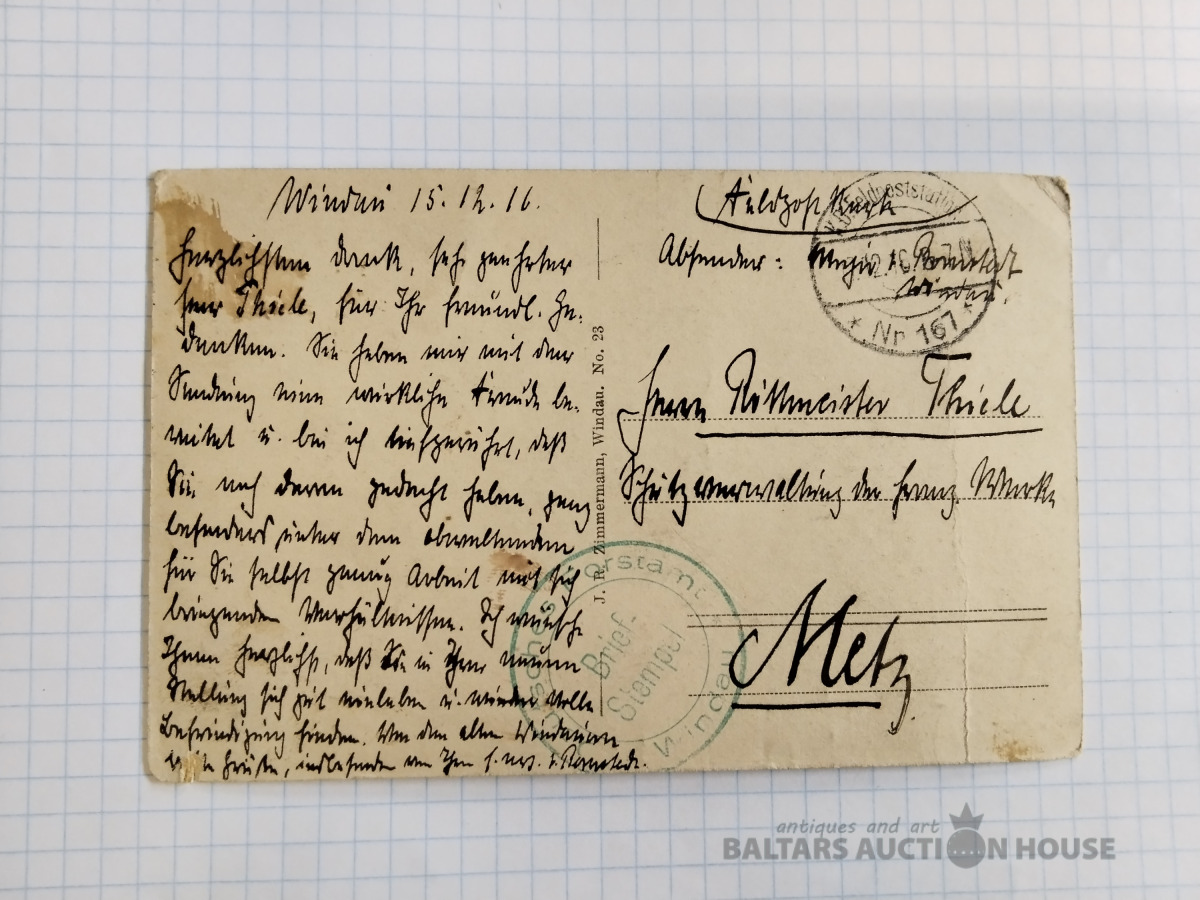 Windau 15.12.16.
Herzlichsten Dank, sehr geehrter
Herr Thiele, für Ihr freundl. Ge-
denken. Sie haben mir mit der
Sendung eine wirkliche Freude be-
reitet u. bin ich tiefgerührt, daß
Sie noch daran gedacht haben, ganz
besonders unter den obwaltenden
für Sie selbst genug Arbeit mit sich
bringenden Verhältnissen. Ich wünsche
Ihnen herzlichst, daß Sie in Ihrer neuen
Stellung sich gut einleben u. wieder volle
Befriedigung finden. Von den alten Windauern
Grüße, insbesondere von Ihrem
J. R. Zimmermann, Windau. No. 23
Feldpostkarte
Absender:
Windau.
K.D. Feldpoststation
* Nr 167 *
Herrn Rittmeister Thiele
Schutzverwaltung der franz. Werke
Metz
Forstamt
Windau
Brief-
Stempel
antiques and art
BALTARS AUCTION HOUSE